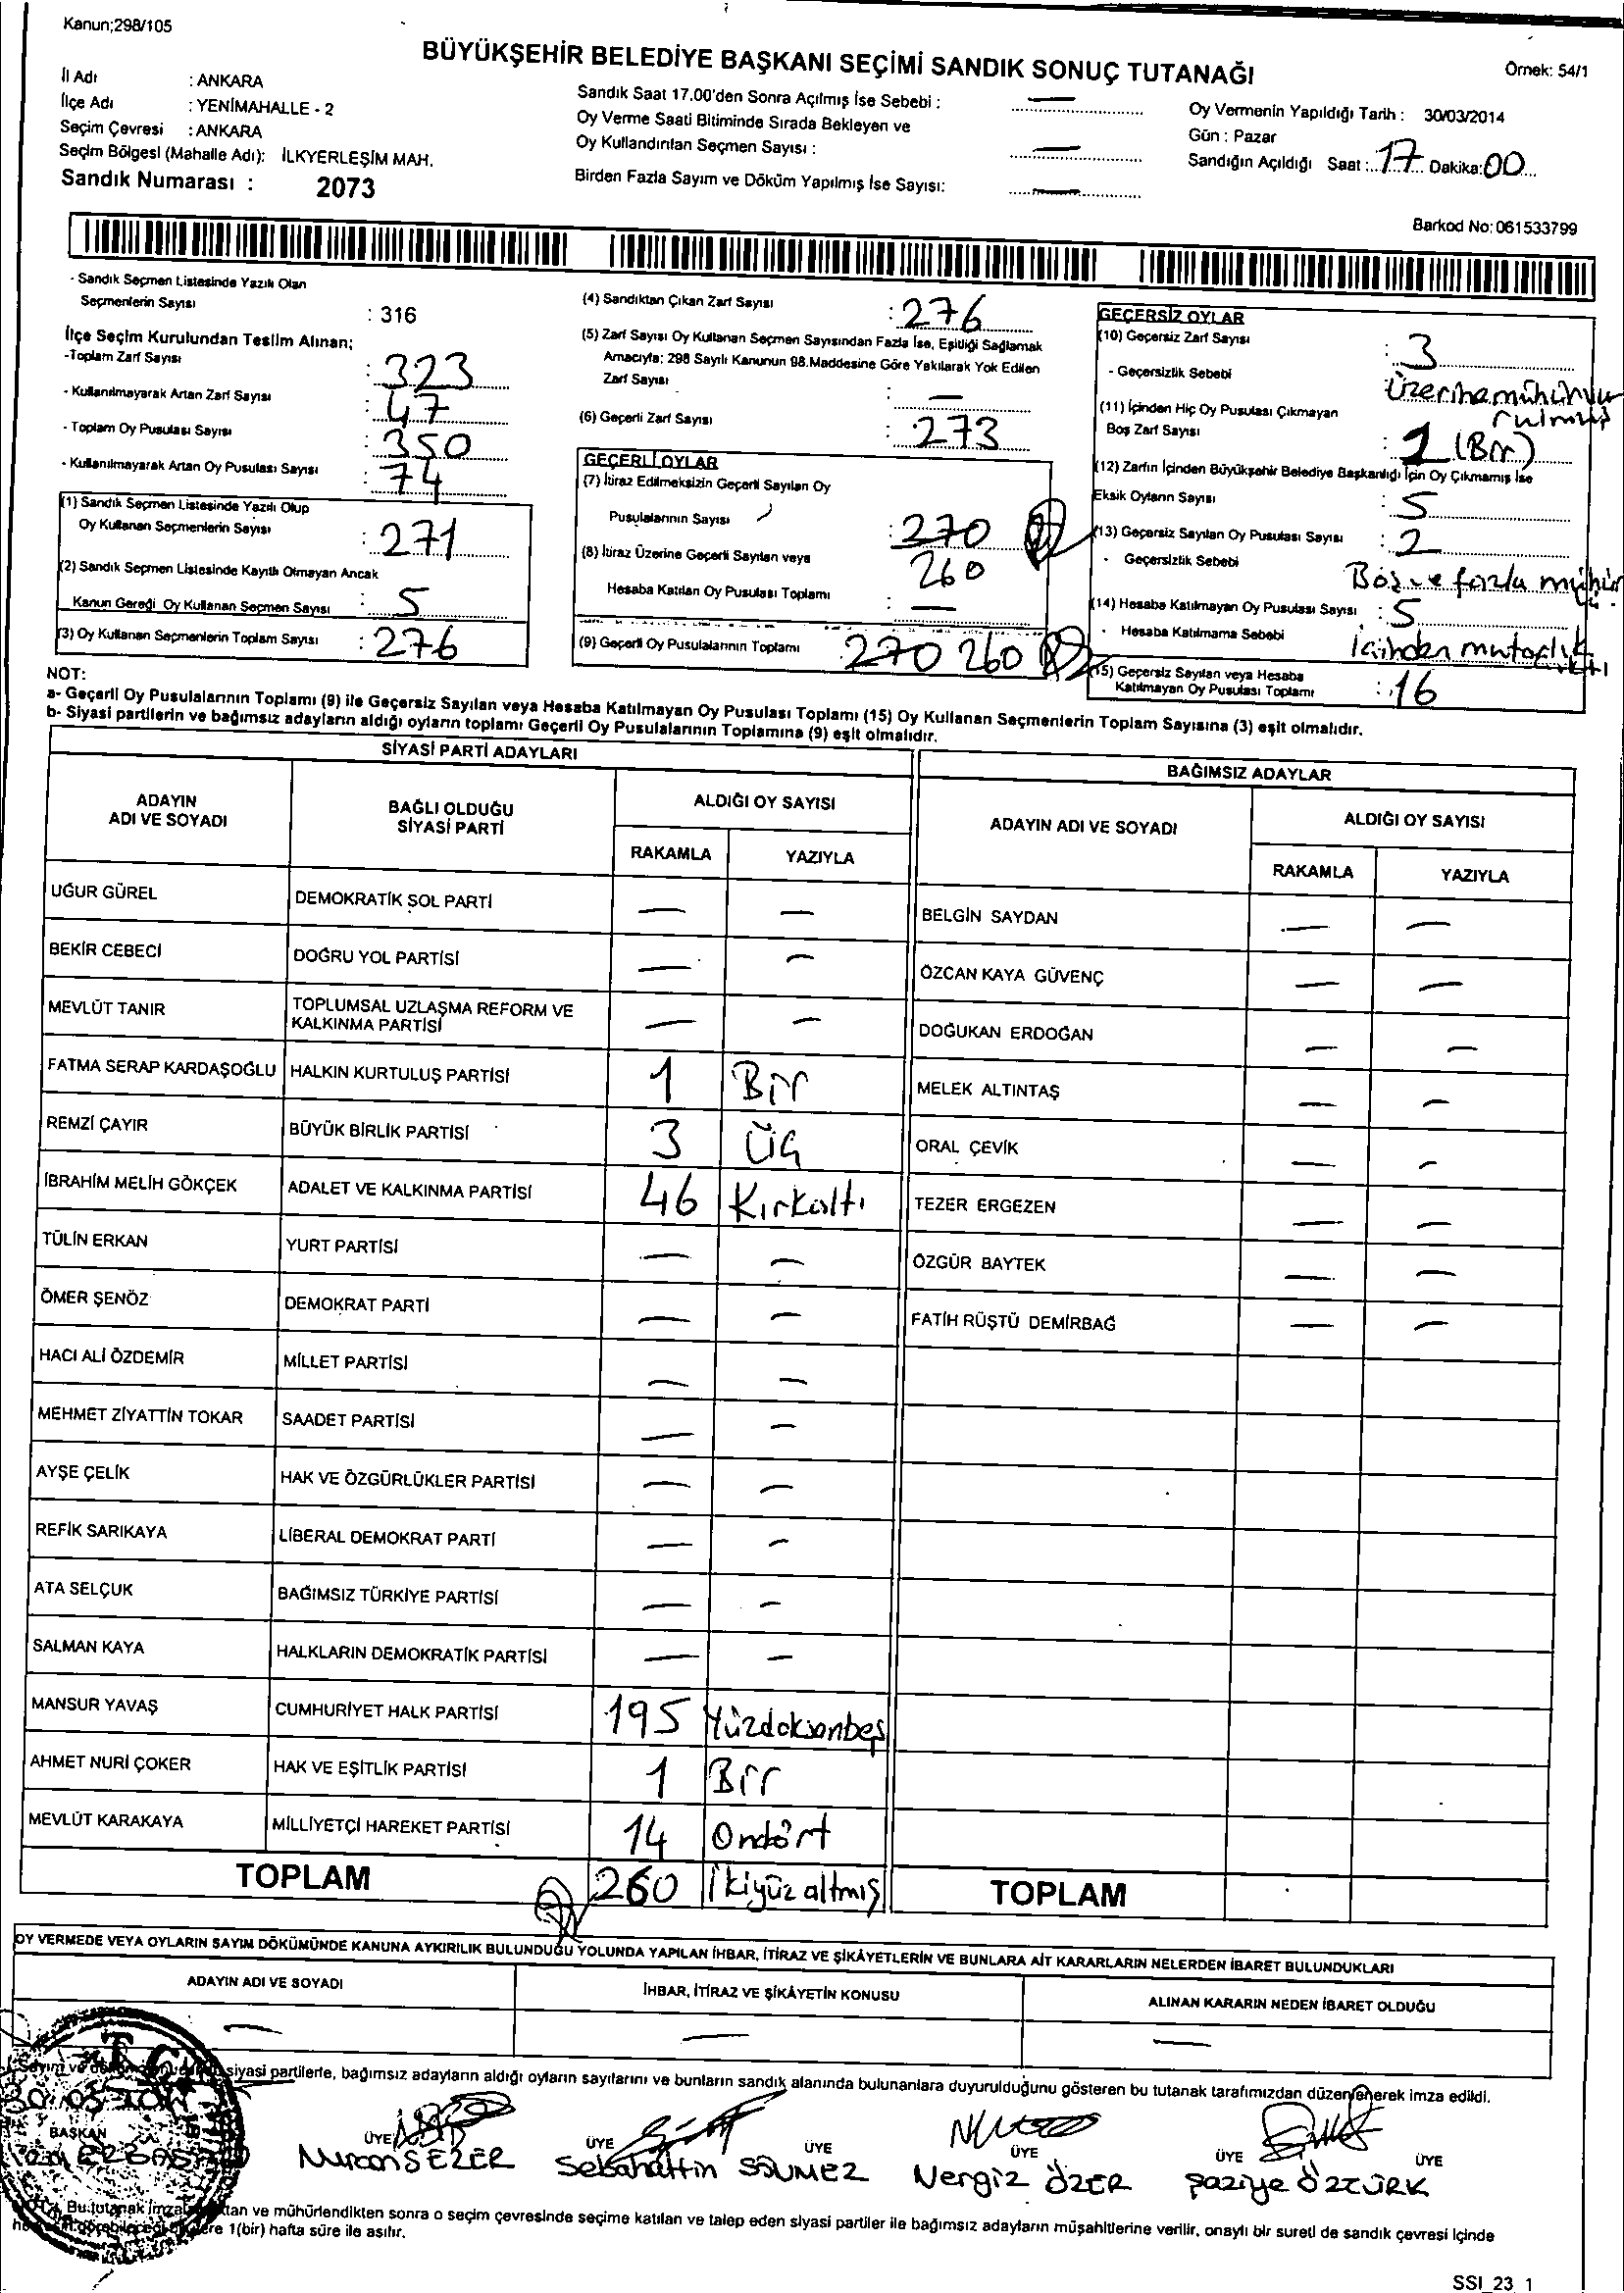 Kanun;298/105
BÜYÜKŞEHİR BELEDİYE BAŞKANI SEÇİMİ SANDIK SONUÇ TUTANAĞI
Örnek: 54/1
İl Adı : ANKARA
İlçe Adı : YENİMAHALLE - 2
Seçim Çevresi : ANKARA
Seçim Bölgesi (Mahalle Adı): İLKYERLEŞİM MAH.
Sandık Numarası : 2073
Sandık Saat 17.00'den Sonra Açılmış İse Sebebi : —
Oy Verme Saati Bitiminde Sırada Bekleyen ve
Oy Kullandırılan Seçmen Sayısı : —
Birden Fazla Sayım ve Döküm Yapılmış İse Sayısı: —
Oy Vermenin Yapıldığı Tarih : 30/03/2014
Gün : Pazar
Sandığın Açıldığı Saat : 17 Dakika: 00
Barkod No: 061533799
- Sandık Seçmen Listesinde Yazılı Olan
Seçmenlerin Sayısı : 316
İlçe Seçim Kurulundan Teslim Alınan;
-Toplam Zarf Sayısı : 323
- Kullanılmayarak Artan Zarf Sayısı : 47
- Toplam Oy Pusulası Sayısı : 350
- Kullanılmayarak Artan Oy Pusulası Sayısı : 74
(1) Sandık Seçmen Listesinde Yazılı Olup
Oy Kullanan Seçmenlerin Sayısı : 271
(2) Sandık Seçmen Listesinde Kayıtlı Olmayan Ancak
Kanun Gereği Oy Kullanan Seçmen Sayısı : 5
(3) Oy Kullanan Seçmenlerin Toplam Sayısı : 276
(4) Sandıktan Çıkan Zarf Sayısı : 276
(5) Zarf Sayısı Oy Kullanan Seçmen Sayısından Fazla İse, Eşitliği Sağlamak
Amacıyla; 298 Sayılı Kanunun 98.Maddesine Göre Yakılarak Yok Edilen
Zarf Sayısı : —
(6) Geçerli Zarf Sayısı : 273
GEÇERLİ OYLAR
(7) İtiraz Edilmeksizin Geçerli Sayılan Oy
Pusulalarının Sayısı : 270
260
(8) İtiraz Üzerine Geçerli Sayılan veya
Hesaba Katılan Oy Pusulası Toplamı : —
(9) Geçerli Oy Pusulalarının Toplamı : 270 260
GEÇERSİZ OYLAR
(10) Geçersiz Zarf Sayısı : 3
- Geçersizlik Sebebi : Üzerine mühür vu
rulmuş
(11) İçinden Hiç Oy Pusulası Çıkmayan
Boş Zarf Sayısı : 1 (Bir)
(12) Zarfın İçinden Büyükşehir Belediye Başkanlığı İçin Oy Çıkmamış İse
Eksik Oyların Sayısı : 5
(13) Geçersiz Sayılan Oy Pusulası Sayısı : 2
- Geçersizlik Sebebi Boş ve fazla mühür
(14) Hesaba Katılmayan Oy Pusulası Sayısı : 5
- Hesaba Katılmama Sebebi İçinden
(15) Geçersiz Sayılan veya Hesaba
Katılmayan Oy Pusulası Toplamı : 16
NOT:
a- Geçerli Oy Pusulalarının Toplamı (9) ile Geçersiz Sayılan veya Hesaba Katılmayan Oy Pusulası Toplamı (15) Oy Kullanan Seçmenlerin Toplam Sayısına (3) eşit olmalıdır.
b- Siyasi partilerin ve bağımsız adayların aldığı oyların toplamı Geçerli Oy Pusulalarının Toplamına (9) eşit olmalıdır.
SİYASİ PARTİ ADAYLARI
ADAYIN
ADI VE SOYADI
BAĞLI OLDUĞU
SİYASİ PARTİ
ALDIĞI OY SAYISI
RAKAMLA YAZIYLA
UĞUR GÜREL DEMOKRATİK SOL PARTİ — —
BEKİR CEBECİ DOĞRU YOL PARTİSİ — —
MEVLÜT TANIR TOPLUMSAL UZLAŞMA REFORM VE
KALKINMA PARTİSİ — —
FATMA SERAP KARDAŞOĞLU HALKIN KURTULUŞ PARTİSİ 1 Bir
REMZİ ÇAYIR BÜYÜK BİRLİK PARTİSİ 3 Üç
İBRAHİM MELİH GÖKÇEK ADALET VE KALKINMA PARTİSİ 46 Kırkaltı
TÜLİN ERKAN YURT PARTİSİ — —
ÖMER ŞENÖZ DEMOKRAT PARTİ — —
HACI ALİ ÖZDEMİR MİLLET PARTİSİ — —
MEHMET ZİYATTİN TOKAR SAADET PARTİSİ — —
AYŞE ÇELİK HAK VE ÖZGÜRLÜKLER PARTİSİ — —
REFİK SARIKAYA LİBERAL DEMOKRAT PARTİ — —
ATA SELÇUK BAĞIMSIZ TÜRKİYE PARTİSİ — —
SALMAN KAYA HALKLARIN DEMOKRATİK PARTİSİ — —
MANSUR YAVAŞ CUMHURİYET HALK PARTİSİ 195 Yüzdoksanbeş
AHMET NURİ ÇOKER HAK VE EŞİTLİK PARTİSİ 1 Bir
MEVLÜT KARAKAYA MİLLİYETÇİ HAREKET PARTİSİ 14 Ondört
TOPLAM 260 İkiyüz altmış
BAĞIMSIZ ADAYLAR
ADAYIN ADI VE SOYADI
ALDIĞI OY SAYISI
RAKAMLA YAZIYLA
BELGİN SAYDAN — —
ÖZCAN KAYA GÜVENÇ — —
DOĞUKAN ERDOĞAN — —
MELEK ALTINTAŞ — —
ORAL ÇEVİK — —
TEZER ERGEZEN — —
ÖZGÜR BAYTEK — —
FATİH RÜŞTÜ DEMİRBAĞ — —
TOPLAM
OY VERMEDE VEYA OYLARIN SAYIM DÖKÜMÜNDE KANUNA AYKIRILIK BULUNDUĞU YOLUNDA YAPILAN İHBAR, İTİRAZ VE ŞİKÂYETLERİN VE BUNLARA AİT KARARLARIN NELERDEN İBARET BULUNDUKLARI
ADAYIN ADI VE SOYADI İHBAR, İTİRAZ VE ŞİKÂYETİN KONUSU ALINAN KARARIN NEDEN İBARET OLDUĞU
— — —
Sayım ve siyasi partilerle, bağımsız adayların aldığı oyların sayılarını ve bunların sandık alanında bulunanlara duyurulduğunu gösteren bu tutanak tarafımızdan düzenlenerek imza edildi.
T.C.
BAŞKAN ÜYE ÜYE ÜYE ÜYE ÜYE ÜYE
Nurcan SEZER Sebahattin SÖNMEZ Nergiz ÖZER Şaziye ÖZTÜRK
NOT: Bu tutanak ve mühürlendikten sonra o seçim çevresinde seçime katılan ve talep eden siyasi partiler ile bağımsız adayların müşahitlerine verilir, onaylı bir sureti de sandık çevresi içinde
1(bir) hafta süre ile asılır.
SSI_23_1